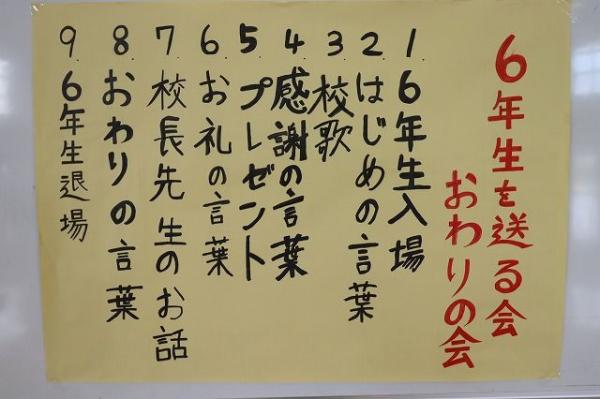 6年生を送る会
おわりの会
1.6年生入場
2.はじめの言葉
3.校歌
4.感謝の言葉
5.プレゼント
6.お礼の言葉
7.校長先生のお話
8.おわりの言葉
9.6年生退場